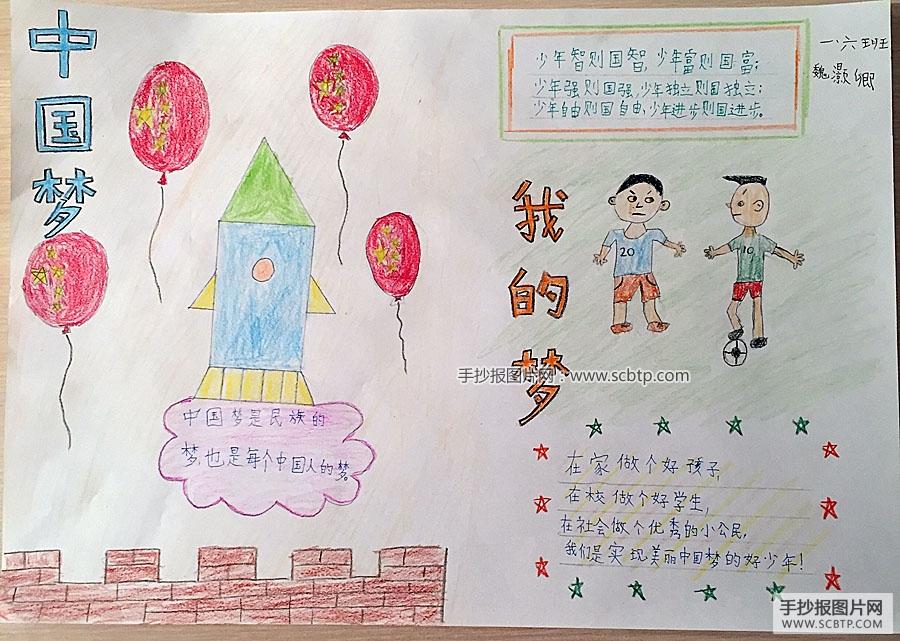 中国梦
少年智则国智,少年富则国富;
少年强则国强,少年独立则国独立;
少年自由则国自由,少年进步则国进步。
一.六班
魏灏卿
我的梦
20
10
手抄报图片网:www.scbtp.com
中国梦是民族的
梦,也是每个中国人的梦。
在家做个好孩子,
在校做个好学生,
在社会做个优秀的小公民,
我们是实现美丽中国梦的好少年!
手抄报图片网
WWW.SCBTP.COM